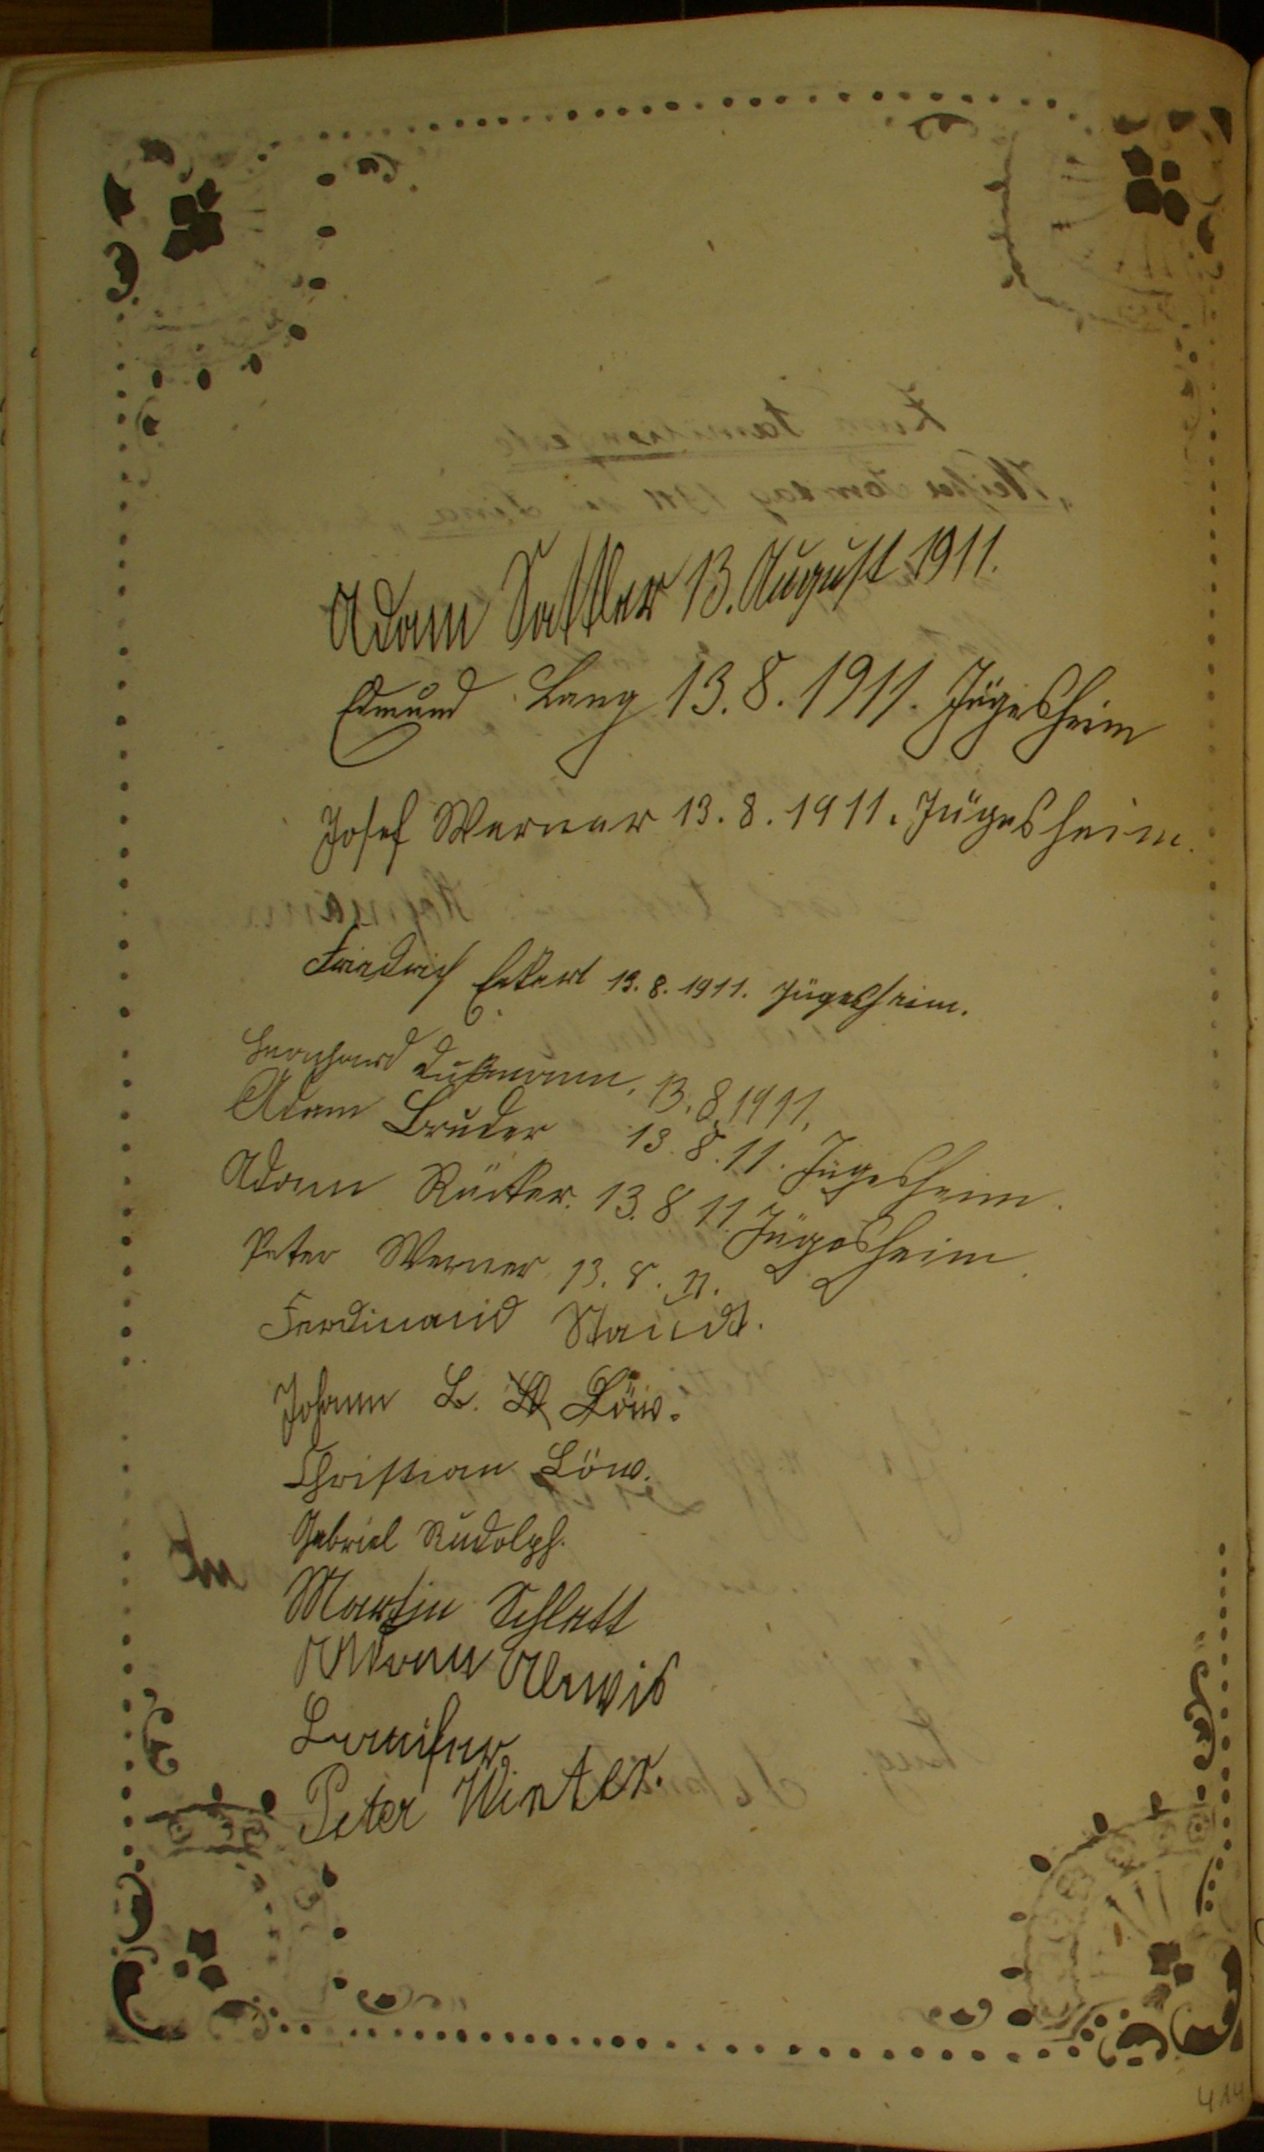 Adam Sattler 13. August 1911.
Edmund Lang 13. 8. 1911. Jügesheim
Josef Werner 13. 8. 1911. Jügesheim.
Friedrich Eckert 13. 8. 1911. Jügesheim.
Leonhard Dußmann, 13. 8. 1911.
Adam Bruder 13. 8. 11. Jügesheim.
Adam Rücker. 13. 8 11. Jügesheim.
Peter Werner 13. 8. 11.
Ferdinand Staudt.
Johann L. Löw.
Christian Löw.
Gabriel Rudolph.
Martin Schlett
Adam
Peter Winter.
414